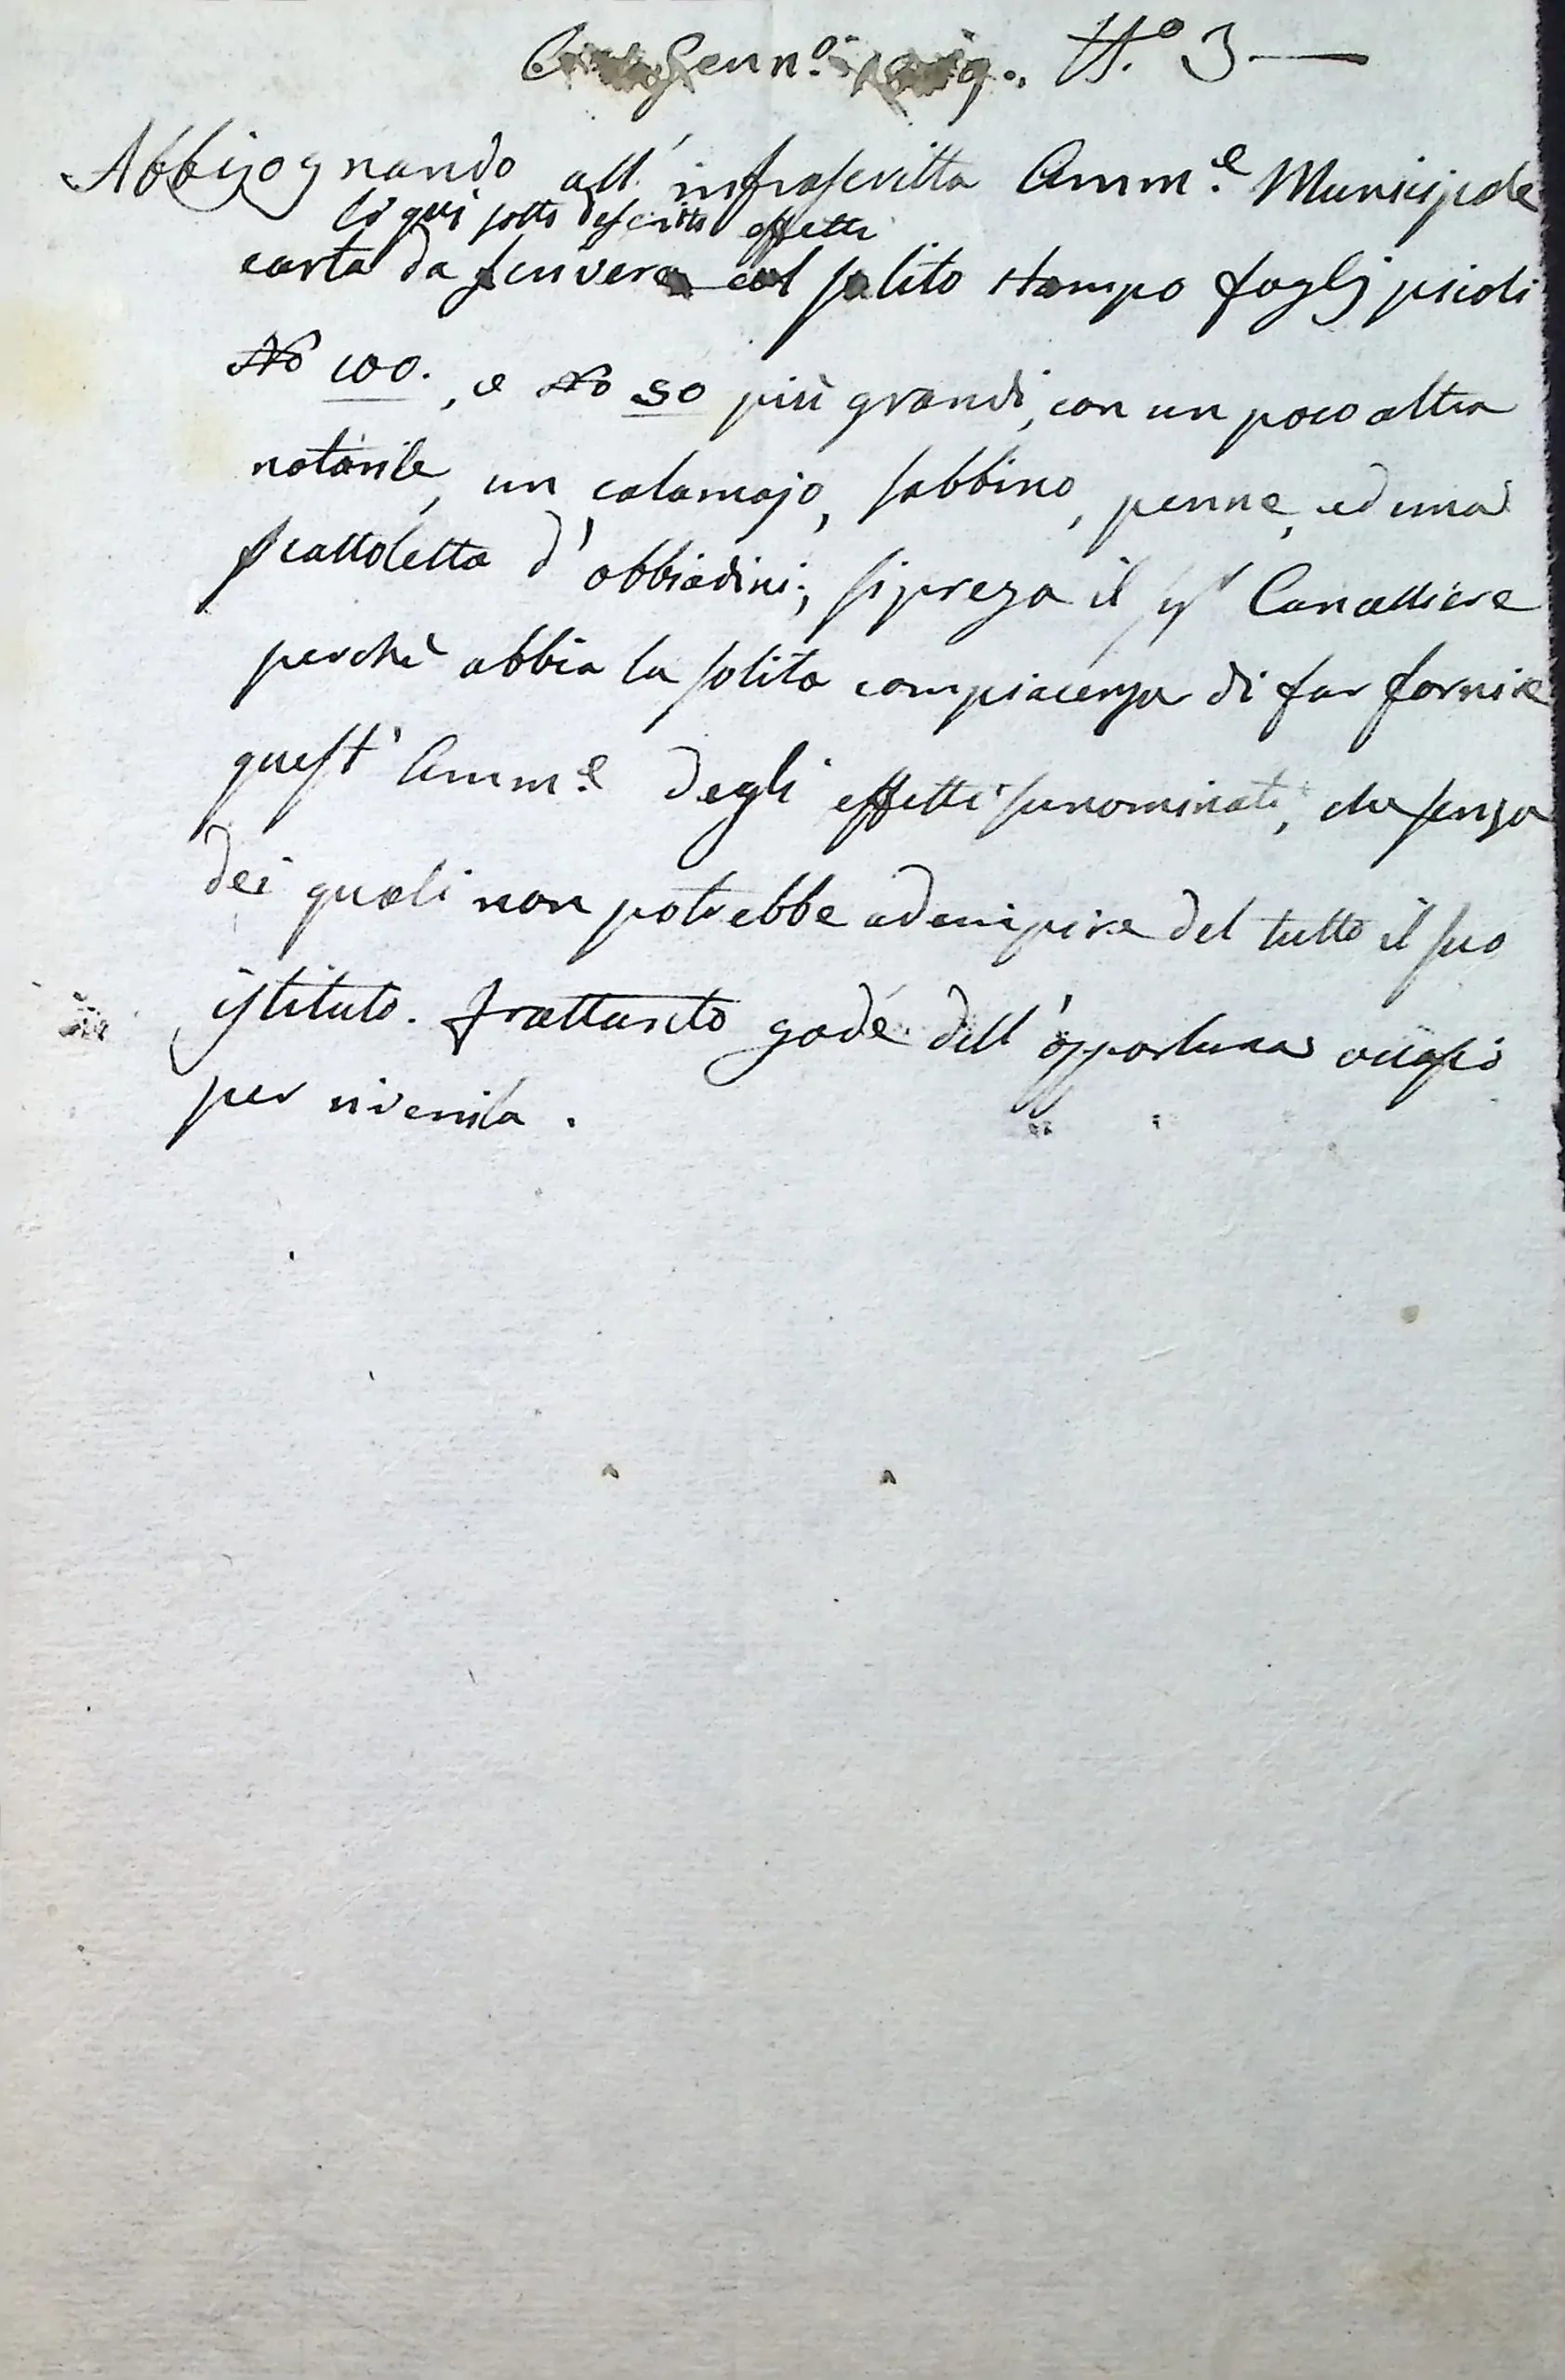 Genn.º N.º 3
Abbisognando all' infrascritta Amm.e Municipale
li qui sotto descritti effetti
carta da scrivere col solito stampo foglj picoli
No 100. , e No 50 più grandi, con un poco altra
notarile, un calamajo, sabbino, penne, ed una
scattoletta d' obbiadini; si prega il Sigr Cancelliere
perchè abbia la solita compiacenza di far fornire
quest' Amm.e degli effetti sunominati, che senza
dei quali non potrebbe adempire del tutto il suo
istituto. frattanto gode dell' opportuna occasio
per riverirla .